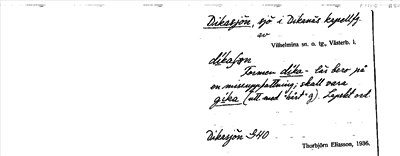 Dikasjön, sjö i Dikanäs kapellfg
av
Vilhelmina sn. o. tg., Västerb. l.
dikaſøn
Formen dika- lär bero på
en missuppfattning; skall vara
gika (utt. med "hårt" g). Lapskt ord.
Dikasjön G40
Thorbjörn Eliasson, 1936.